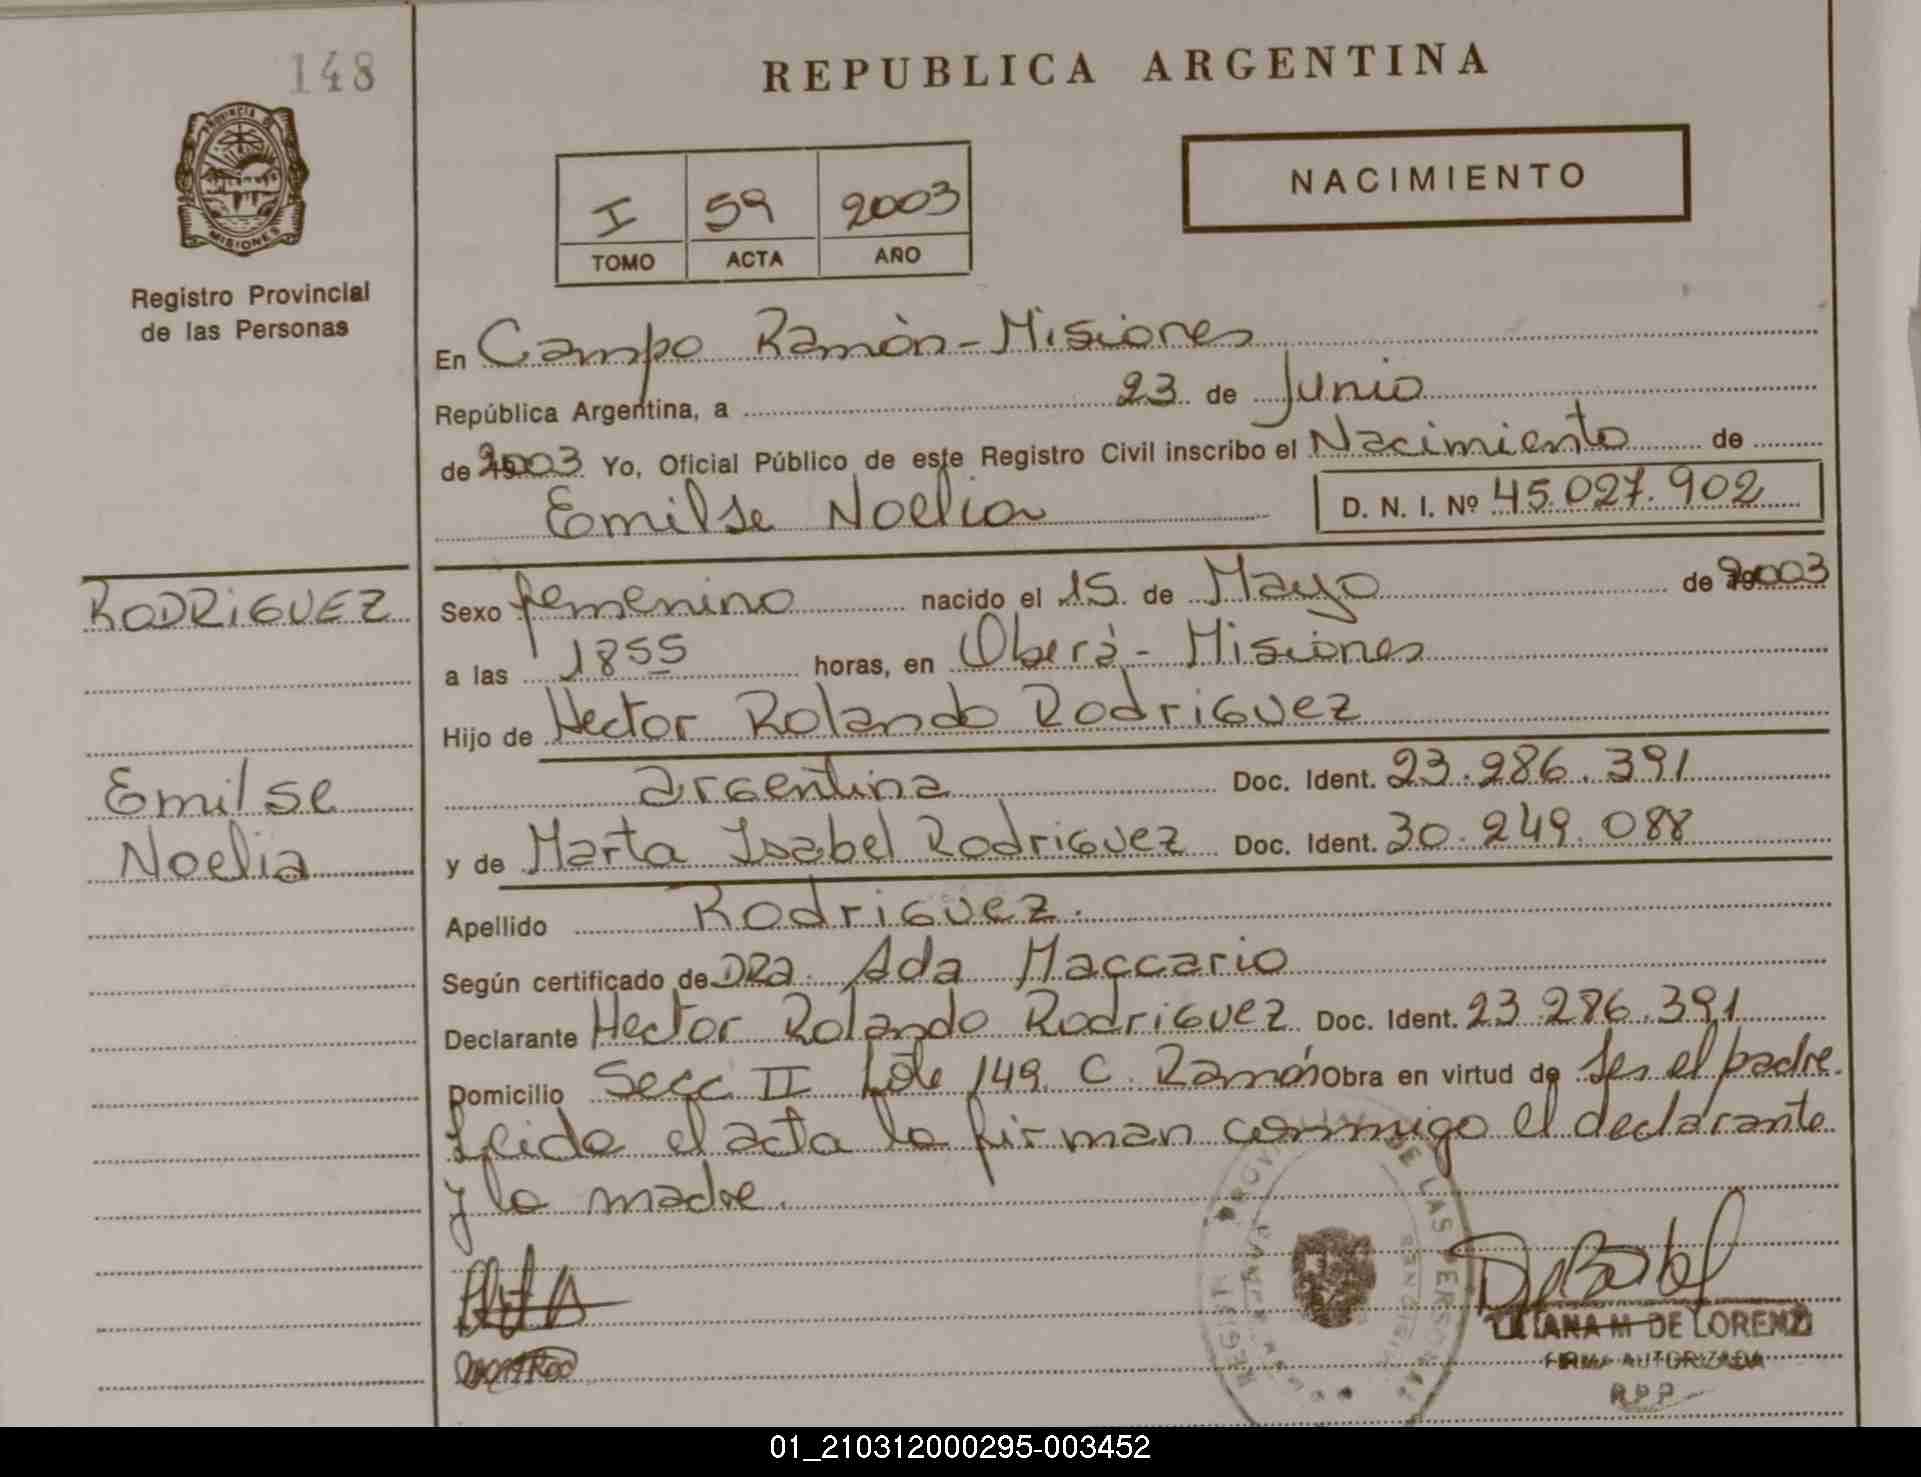 148
REPUBLICA ARGENTINA
PROVINCIA DE
MISIONES
Registro Provincial
de las Personas
I 59 2003
TOMO ACTA AÑO
NACIMIENTO
En Campo Ramón - Misiones
República Argentina, a 23 de Junio
de 2003 Yo, Oficial Público de este Registro Civil inscribo el Nacimiento de
Emilse Noelia D. N. I. Nº 45.027.902
RODRIGUEZ
Emilse
Noelia
Sexo femenino nacido el 15 de Mayo de 2003
a las 1855 horas, en Oberá - Misiones
Hijo de Hector Rolando Rodriguez
argentina Doc. Ident. 23.286.391
y de Marta Isabel Rodriguez Doc. Ident. 30.249.088
Apellido Rodriguez.
Según certificado de DRa. Ada Maccario
Declarante Hector Rolando Rodriguez Doc. Ident. 23.286.391
Domicilio Secc. II Lote 149 C. Ramón Obra en virtud de ser el padre.
Leida el acta la firman conmigo el declarante
y la madre.
REGISTRO PROVINCIAL DE LAS PERSONAS
MISIONES
LILIANA M DE LORENZI
FIRMA AUTORIZADA
R.P.P.
01_210312000295-003452